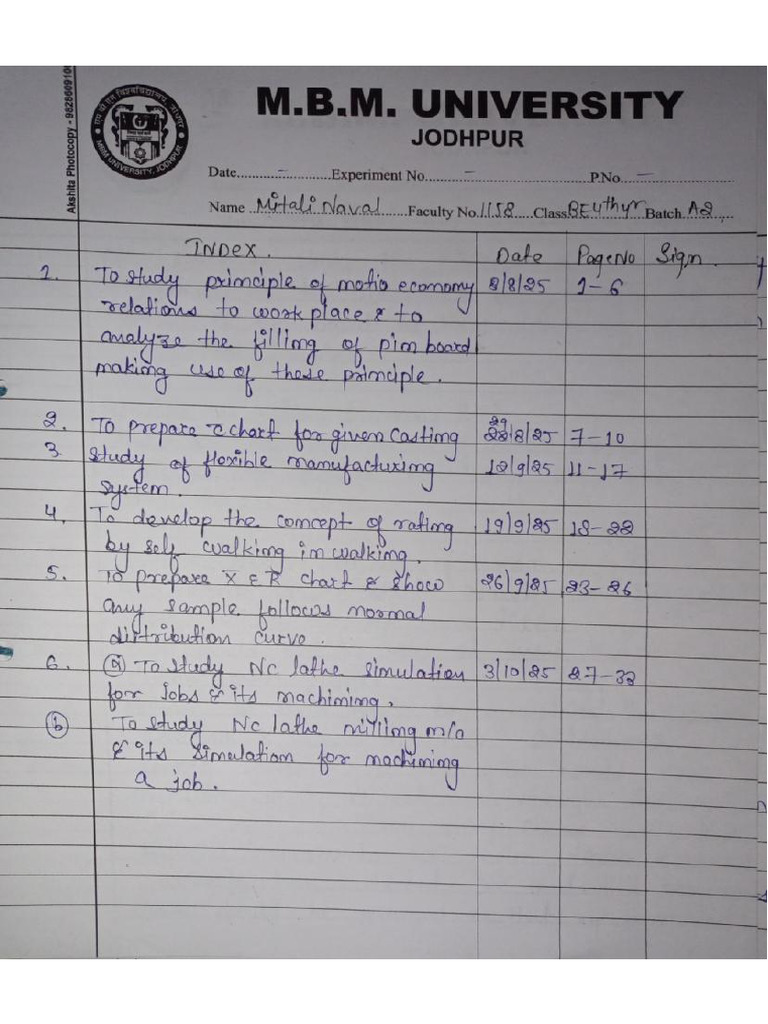 Akshita Photocopy - 982860910
M.B.M. UNIVERSITY
JODHPUR
MBM UNIVERSITY, JODHPUR
Date.......-.......Experiment No.......-.......P.No....-
Name ..Mitali Naval.......Faculty No.1158....Class.BE4thyr.Batch.A2....
INDEX. Date Page No Sign.
1. To study principle of motio economy 8/8/25 1-6
relations to work place & to
analyze the filling of pim board
making use of these principle.
2. To prepare c chart for given casting 22/8/25 7-10
3. Study of flexible manufacturing 12/9/25 11-17
system.
4. To develop the concept of rating 19/9/25 18-22
by self walking in walking.
5. To prepare X & R chart & show 26/9/25 23-26
any sample follows normal
distribution curve.
6. (a) To study NC lathe simulation 3/10/25 27-32
for jobs & its machining.
(b) To study NC lathe milling m/c
& its simulation for machining
a job.